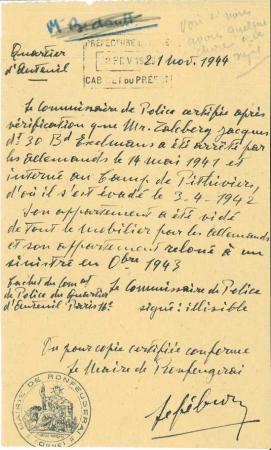 Mr Bedault
Voir si nous
avons quelque
chose à ce
sujet
Quartier
d'Auteuil
PRÉFECTURE
FEV 19
CABINET DU PRÉFET
21 Nov. 1944
Le Commissaire de Police certifie après
vérification que Mr. Zalcberg Jacques
dt 30 Bd Exelmans a été arrêté par
les allemands le 14 mai 1941 et
interné au Camp de Pithiviers,
d'où il s'est évadé le 3-4-1942
Son appartement a été vidé
de tout le mobilier par les allemands
et son appartement reloué à un
sinistré en Obre 1943
Cachet du Com at
de Police du Quartier
d'Auteuil Paris 16e
Le Commissaire de Police
signé : illisible
Vu pour copie certifiée conforme
Le Maire de Ronfeugerai
MAIRIE DE RONFEUGERAI
(ORNE)